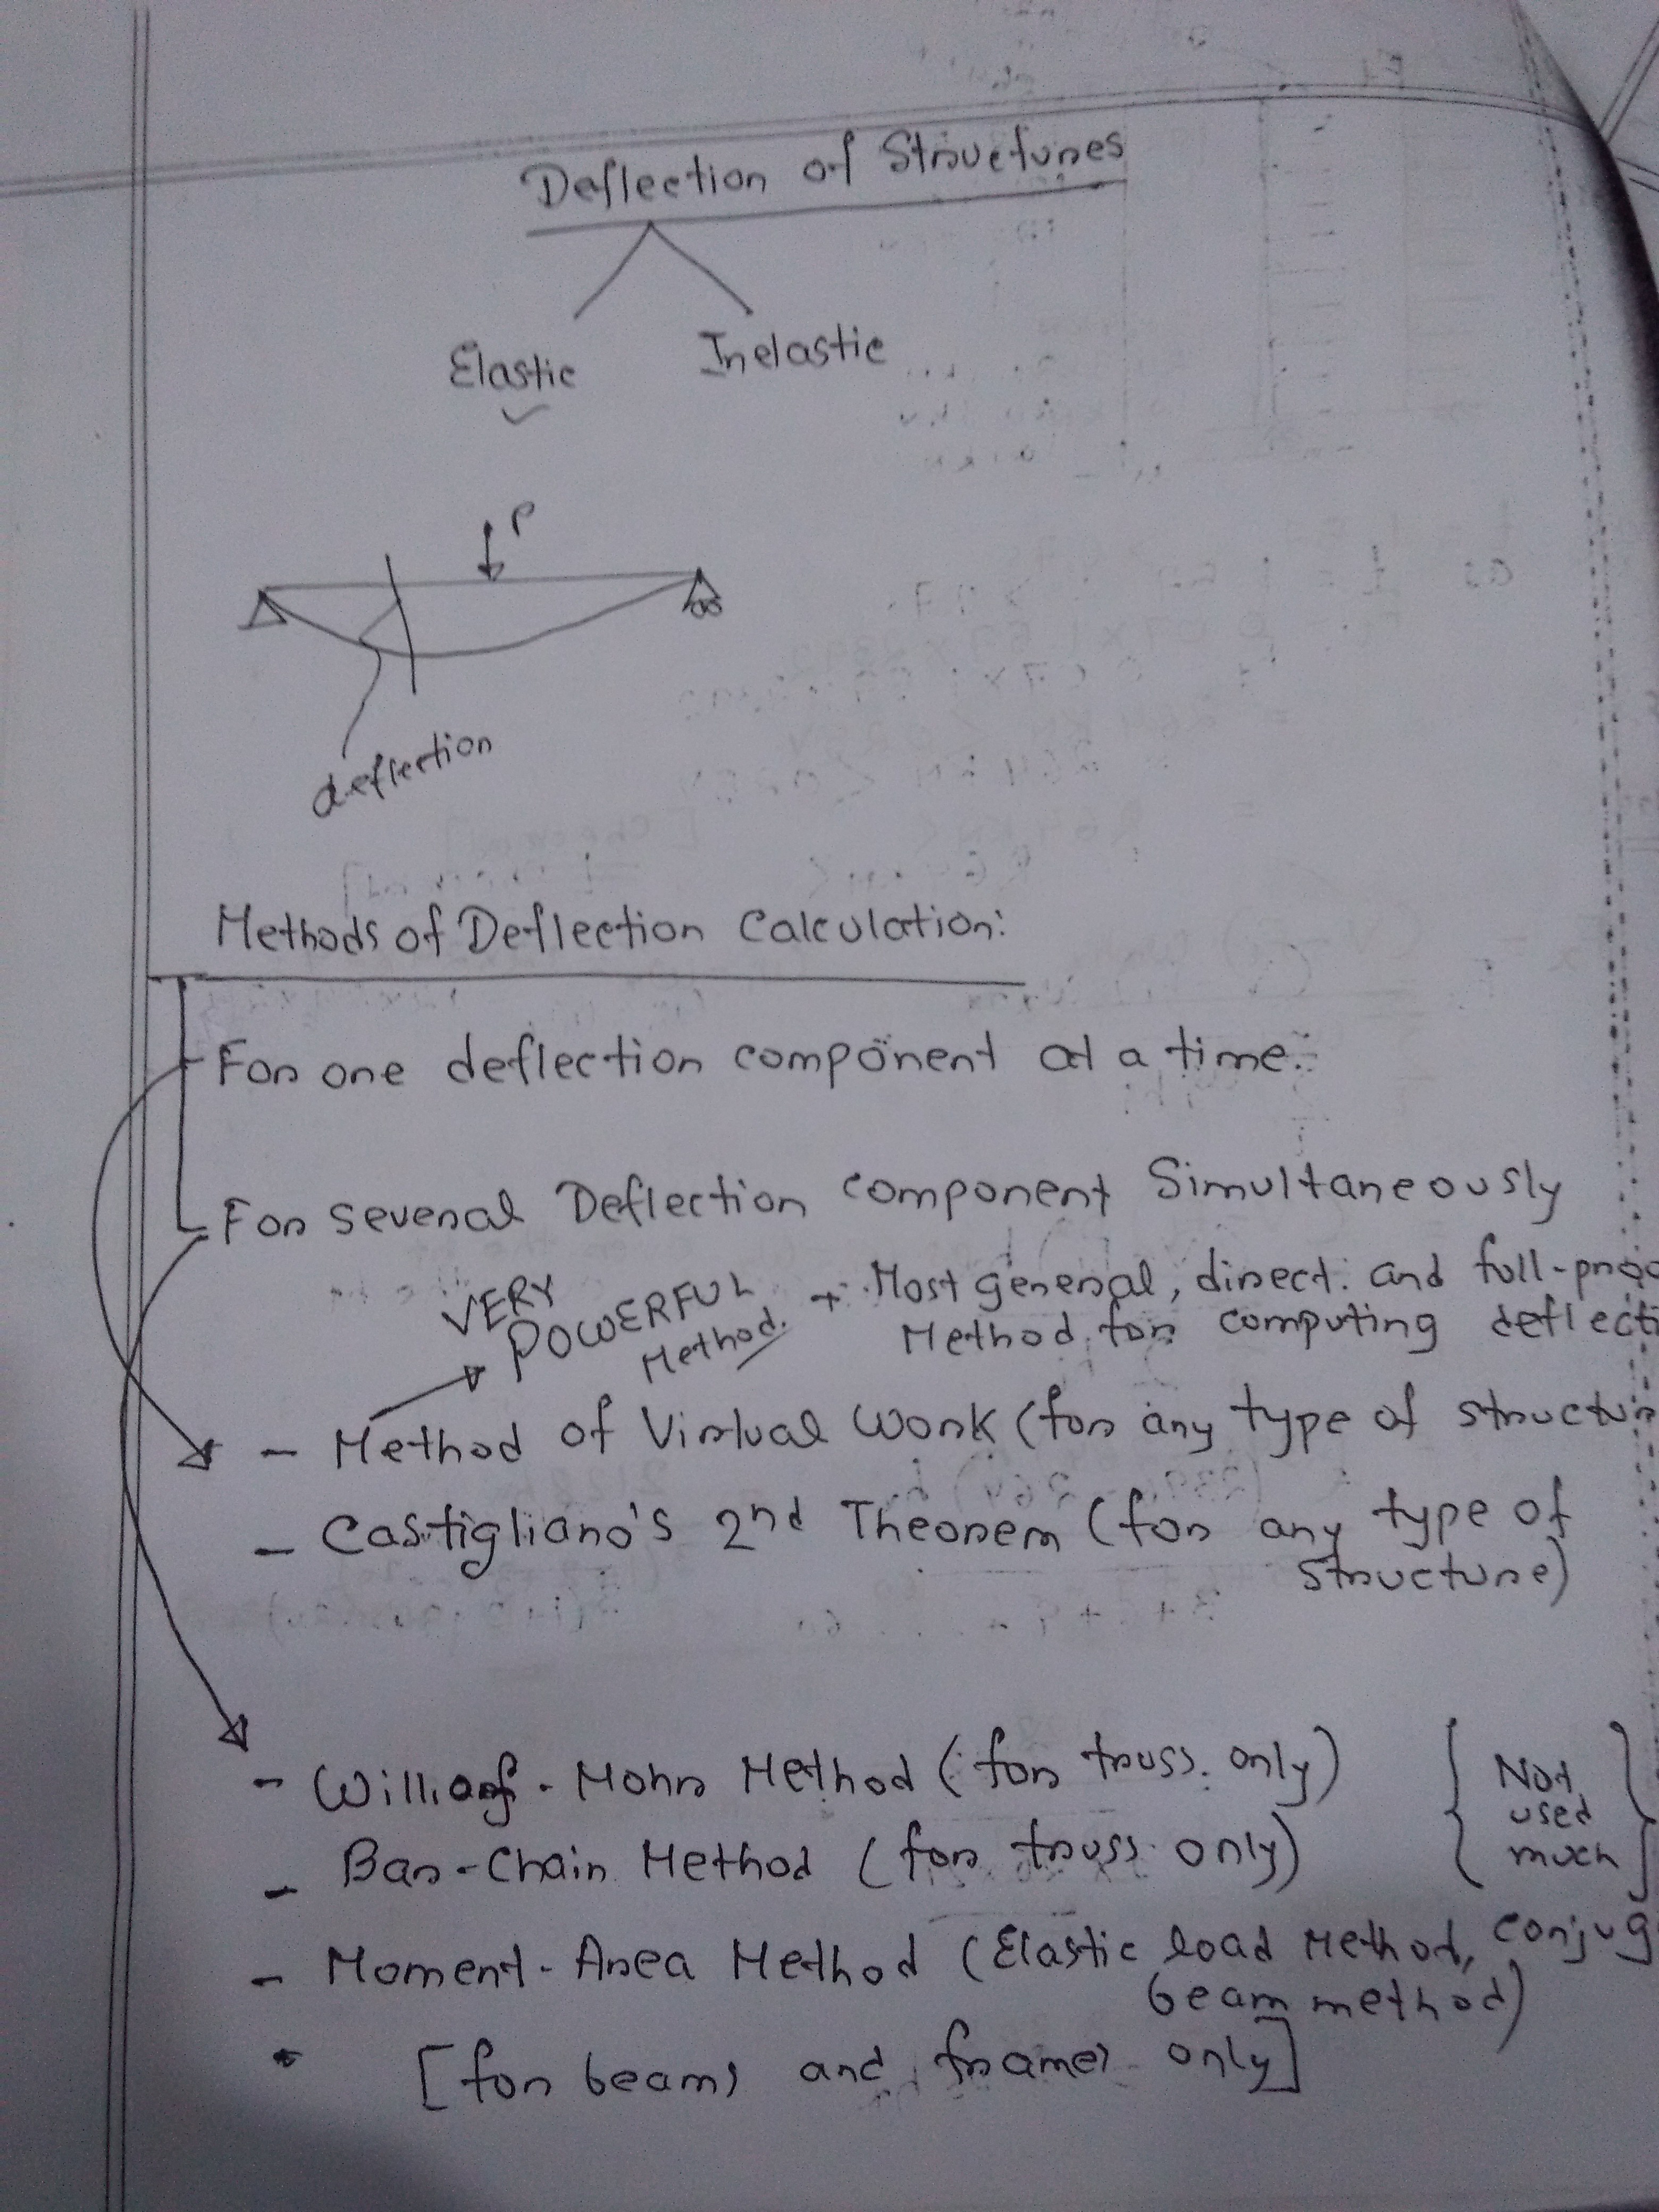 Deflection of Structures
Elastic Inelastic
P
deflection
Methods of Deflection Calculation:
For one deflection component at a time.
For several Deflection component Simultaneously
VERY POWERFUL Method. + Most general, direct and full-proo
Method for computing deflecti
- Method of Virtual Work (for any type of structur
- Castigliano's 2nd Theorem (for any type of
structure)
- Mohr Method (for truss only)
- Bar-Chain Method (for truss only)
{ Not used much }
- Moment-Area Method (Elastic load Method, conjug
beam method)
[for beams and frames only]